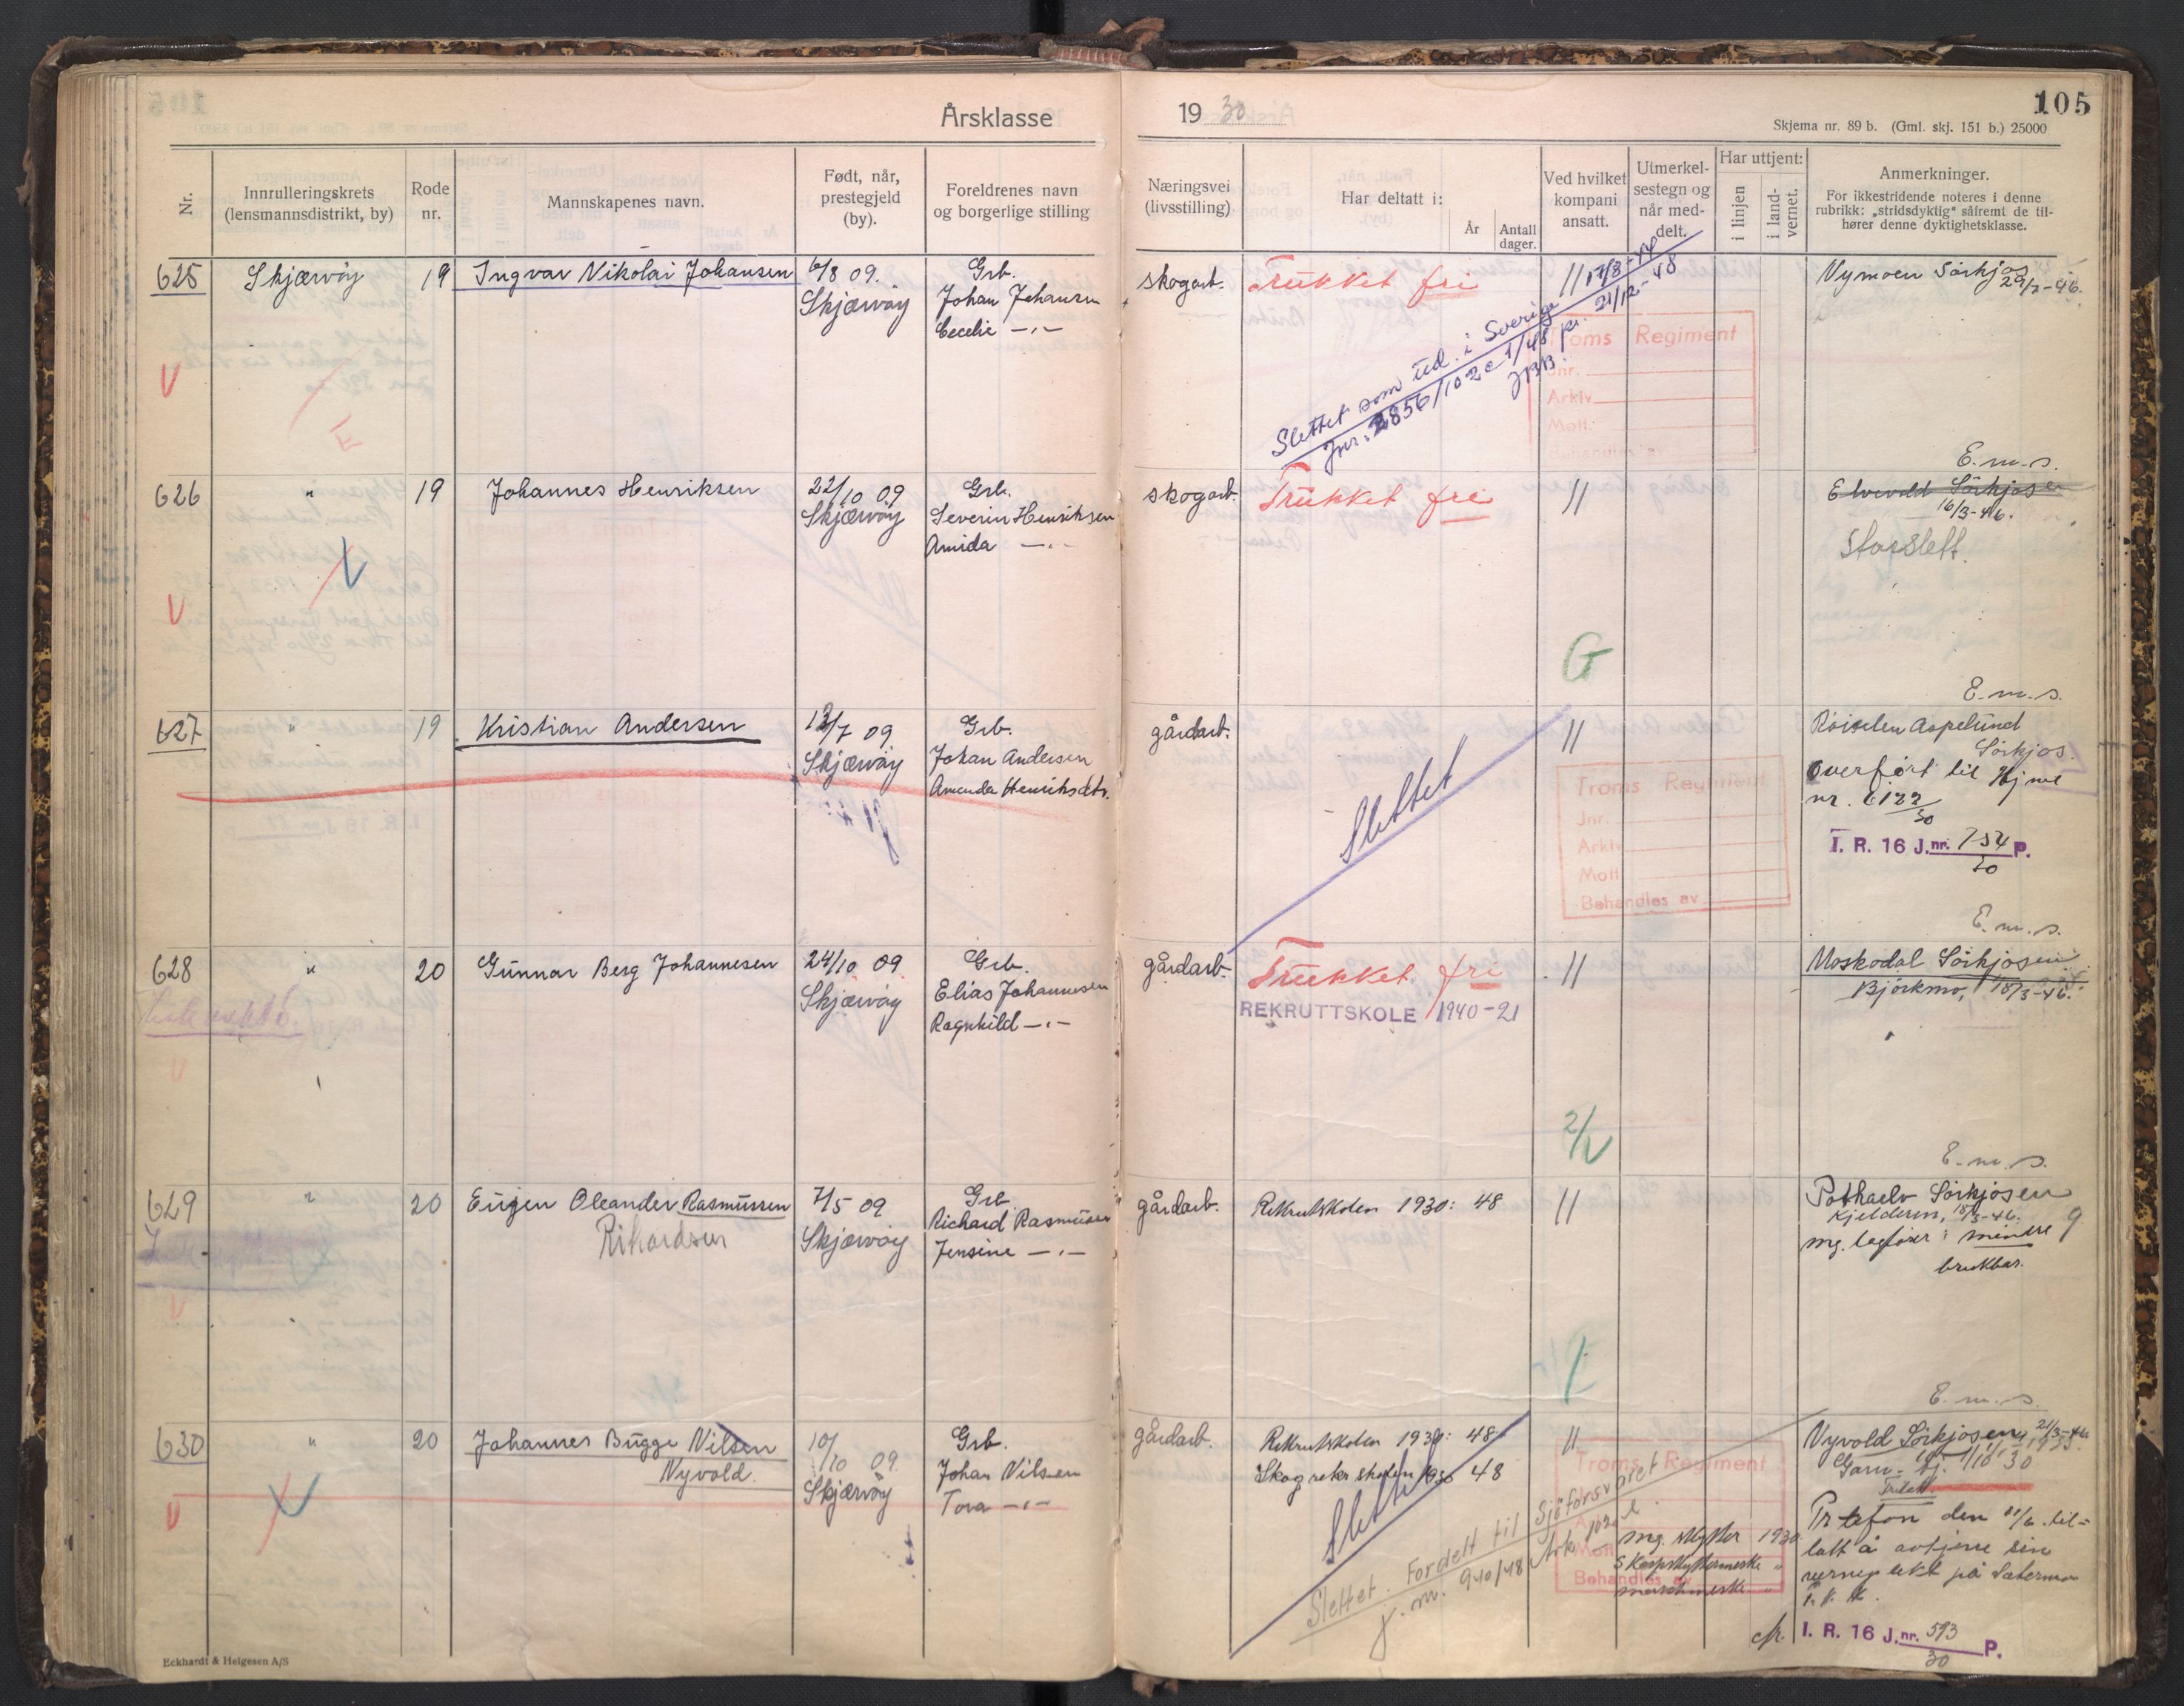 Årsklasse
19 30
105
Skjema nr. 89 b. (Gml. skj. 151 b.) 25000
Nr.
Innrulleringskrets
(lensmannsdistrikt, by)
Rode
nr.
Mannskapenes navn.
Født, når,
prestegjeld
(by).
Foreldrenes navn
og borgerlige stilling
Næringsvei
(livsstilling)
Har deltatt i:
År
Antall
dager.
Ved hvilket
kompani
ansatt.
Utmerkel-
sestegn og
når med-
delt.
Har uttjent:
i linjen
i land-
vernet.
Anmerkninger.
For ikkestridende noteres i denne
rubrikk: „stridsdyktig“ såfremt de til-
hører denne dyktighetsklasse.
625 Skjærvöy 19 Ingvar Nikolai Johansen 6/8 09.
Skjærvöy
Grb.
Johan Johansen
Cecelie —"—
skogarb. Trukket fri 11
Slettet som utd. i Sverige 17/8-44
Jnr. 2856/1020 1/48 pr. 21/12-48
Troms Regiment
Jnr.
Arkiv
Mott.
Nymoen Sörkjos
29/3-46.
V
E
E.m.s.
626 " 19 Johannes Henriksen 22/10 09
Skjærvöy
Grb.
Severin Henriksen
Amida —"—
skogarb. Trukket fri 11
Elvevold Sörkjosen
16/3-46.
Storslett.
V
G
E.m.s.
627 " 19 Kristian Andersen 13/7 09
Skjærvöy
Grb.
Johan Andersen
Amanda Henriksdtr.
gårdarb. 11
Slettet
Troms Regiment
Jnr.
Arkiv
Mott.
Behandles av
Aspelund
Sörkjos.
Overfört til Hj
nr. 6122/30
I. R. 16 J.nr. 754 P.
30
E.m.s.
628 " 20 Gunnar Berg Johannesen 24/10 09
Skjærvöy
Grb.
Elias Johannesen
Ragnhild —"—
gårdarb. Trukket fri 11
REKRUTTSKOLE 1940-21
Moskodal Sörkjosen
Björkmo, 18/3-46.
V
2/V
E.m.s.
629 " 20 Eugen Oleander Rasmussen 7/5 09
Rikardsen
Skjærvöy
Grb.
Richard Rasmussen
Jensine —"—
gårdarb. Rekrutskolen 1930: 48 11
Sörkjosen
Kjelderen, 18/3-46.
mg. lagförer: mindre
brukbar.
V
E.m.s.
630 " 20 Johannes Bugge Nilsen
Nyvold.
10/10 09
Skjærvöy
Grb.
Johan Nilsen
Tora —"—
gårdarb. Rekrutskolen 1930: 48 11
Skogrekr skolen 1930 48
Slettet
Slettet. Fordelt til Sjöforsvaret
J. nr. 940/48 Ark 1020
Troms Regiment
Behandles av
mg. skytter 1930
Skarpskyttermerke "
marschmerke "
Nyvold Sörkjosen, 21/3-46
Garn. tj. 1/10 30
Pr telefon den 21/6 til-
latt å avtjene sin
verneplikt på Setermoen
V
cfr. I. R. 16 J.nr. 593 P.
30
Eckhardt & Helgesen A/S